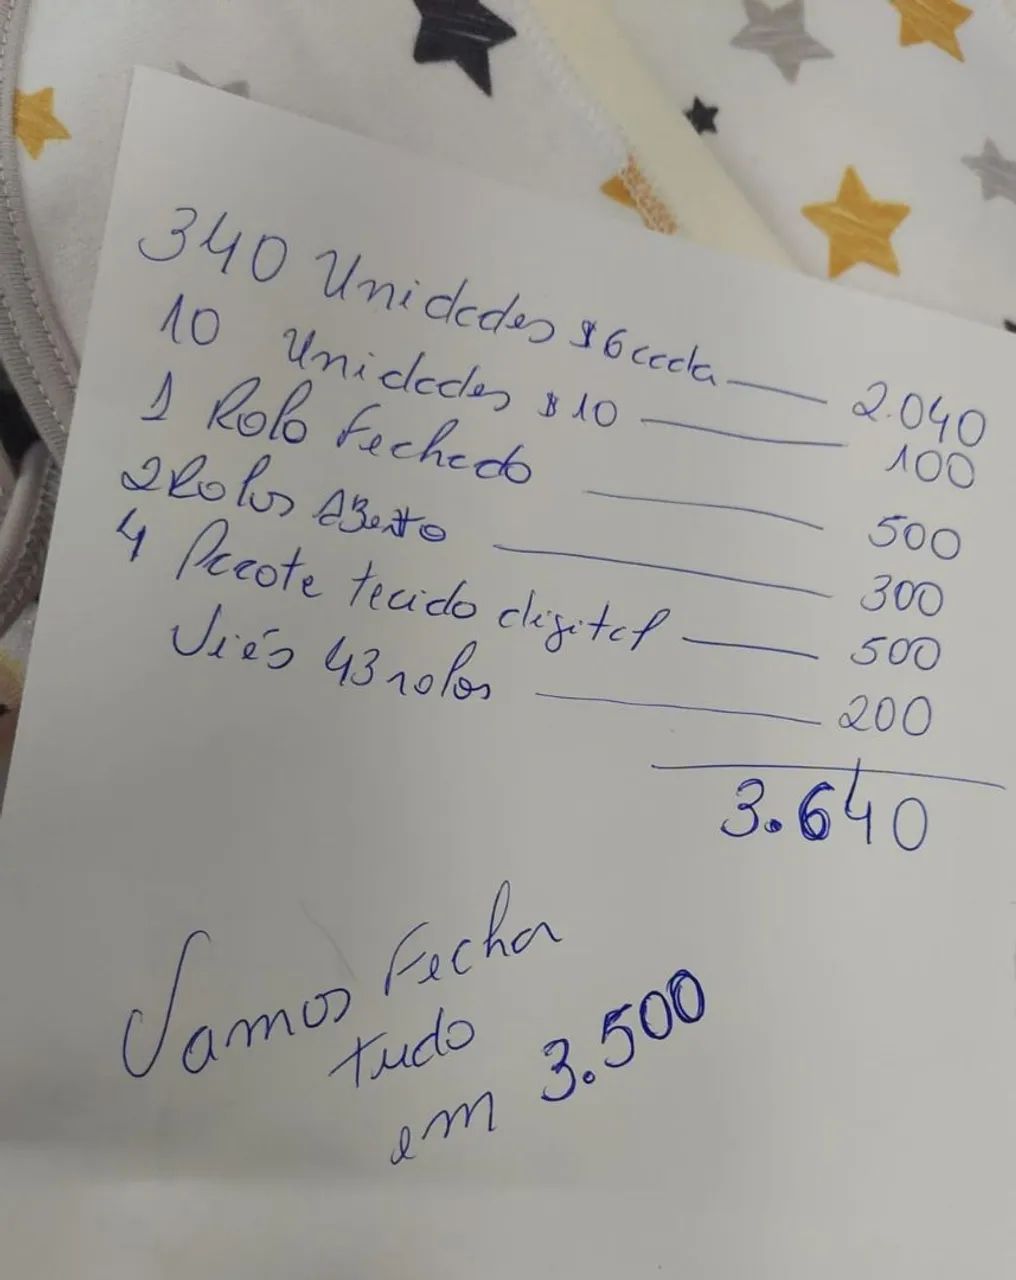 340 Unidades $6 cada — 2.040
10 Unidades $10 — 100
1 Rolo Fechado — 500
2 Rolos ABerto — 300
4 Pacote tecido digital — 500
Viés 43 rolos — 200
3.640
Vamos Fechar
tudo
em 3.500